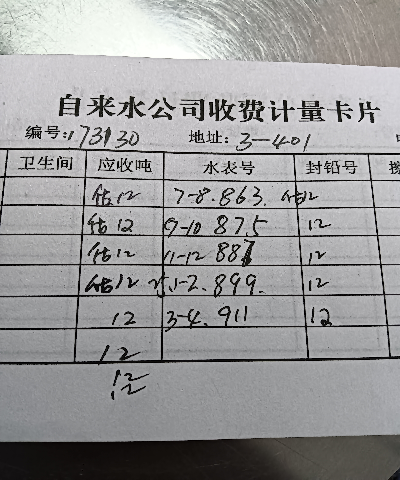 自来水公司收费计量卡片
编号:173130 地址:3-401
卫生间 应收吨 水表号 封铅号
估12 7-8.863. 估12
估12 9-10 875 12
估12 11-12 887 12
估12 25.1-2.899. 12
12 3-4.911 12
12
12